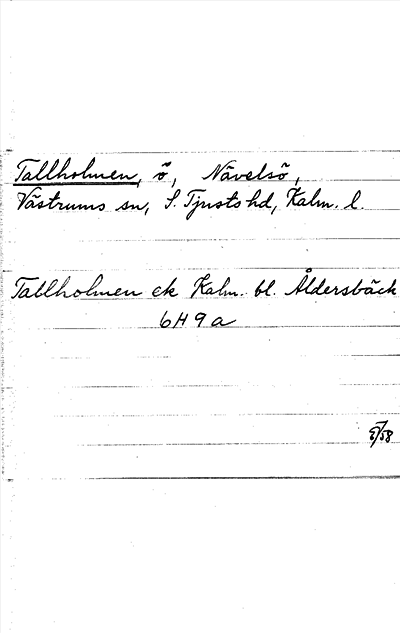 Tallholmen, ö, Nävelsö,
Västrums sn, S. Tjusts hd, Kalm. l.
Tallholmen ek Kalm. bl. Åldersbäck
6H 9a